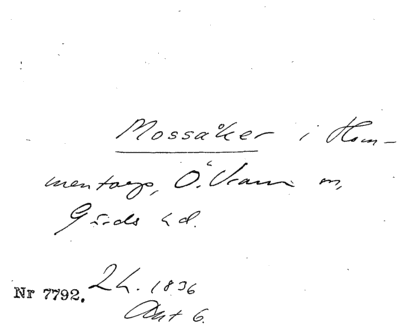 Mossåker i Hem-
mentorp, Ö. Vram m,
Gärds hd.
Nr 7792. 2h. 1836
Akt 6.